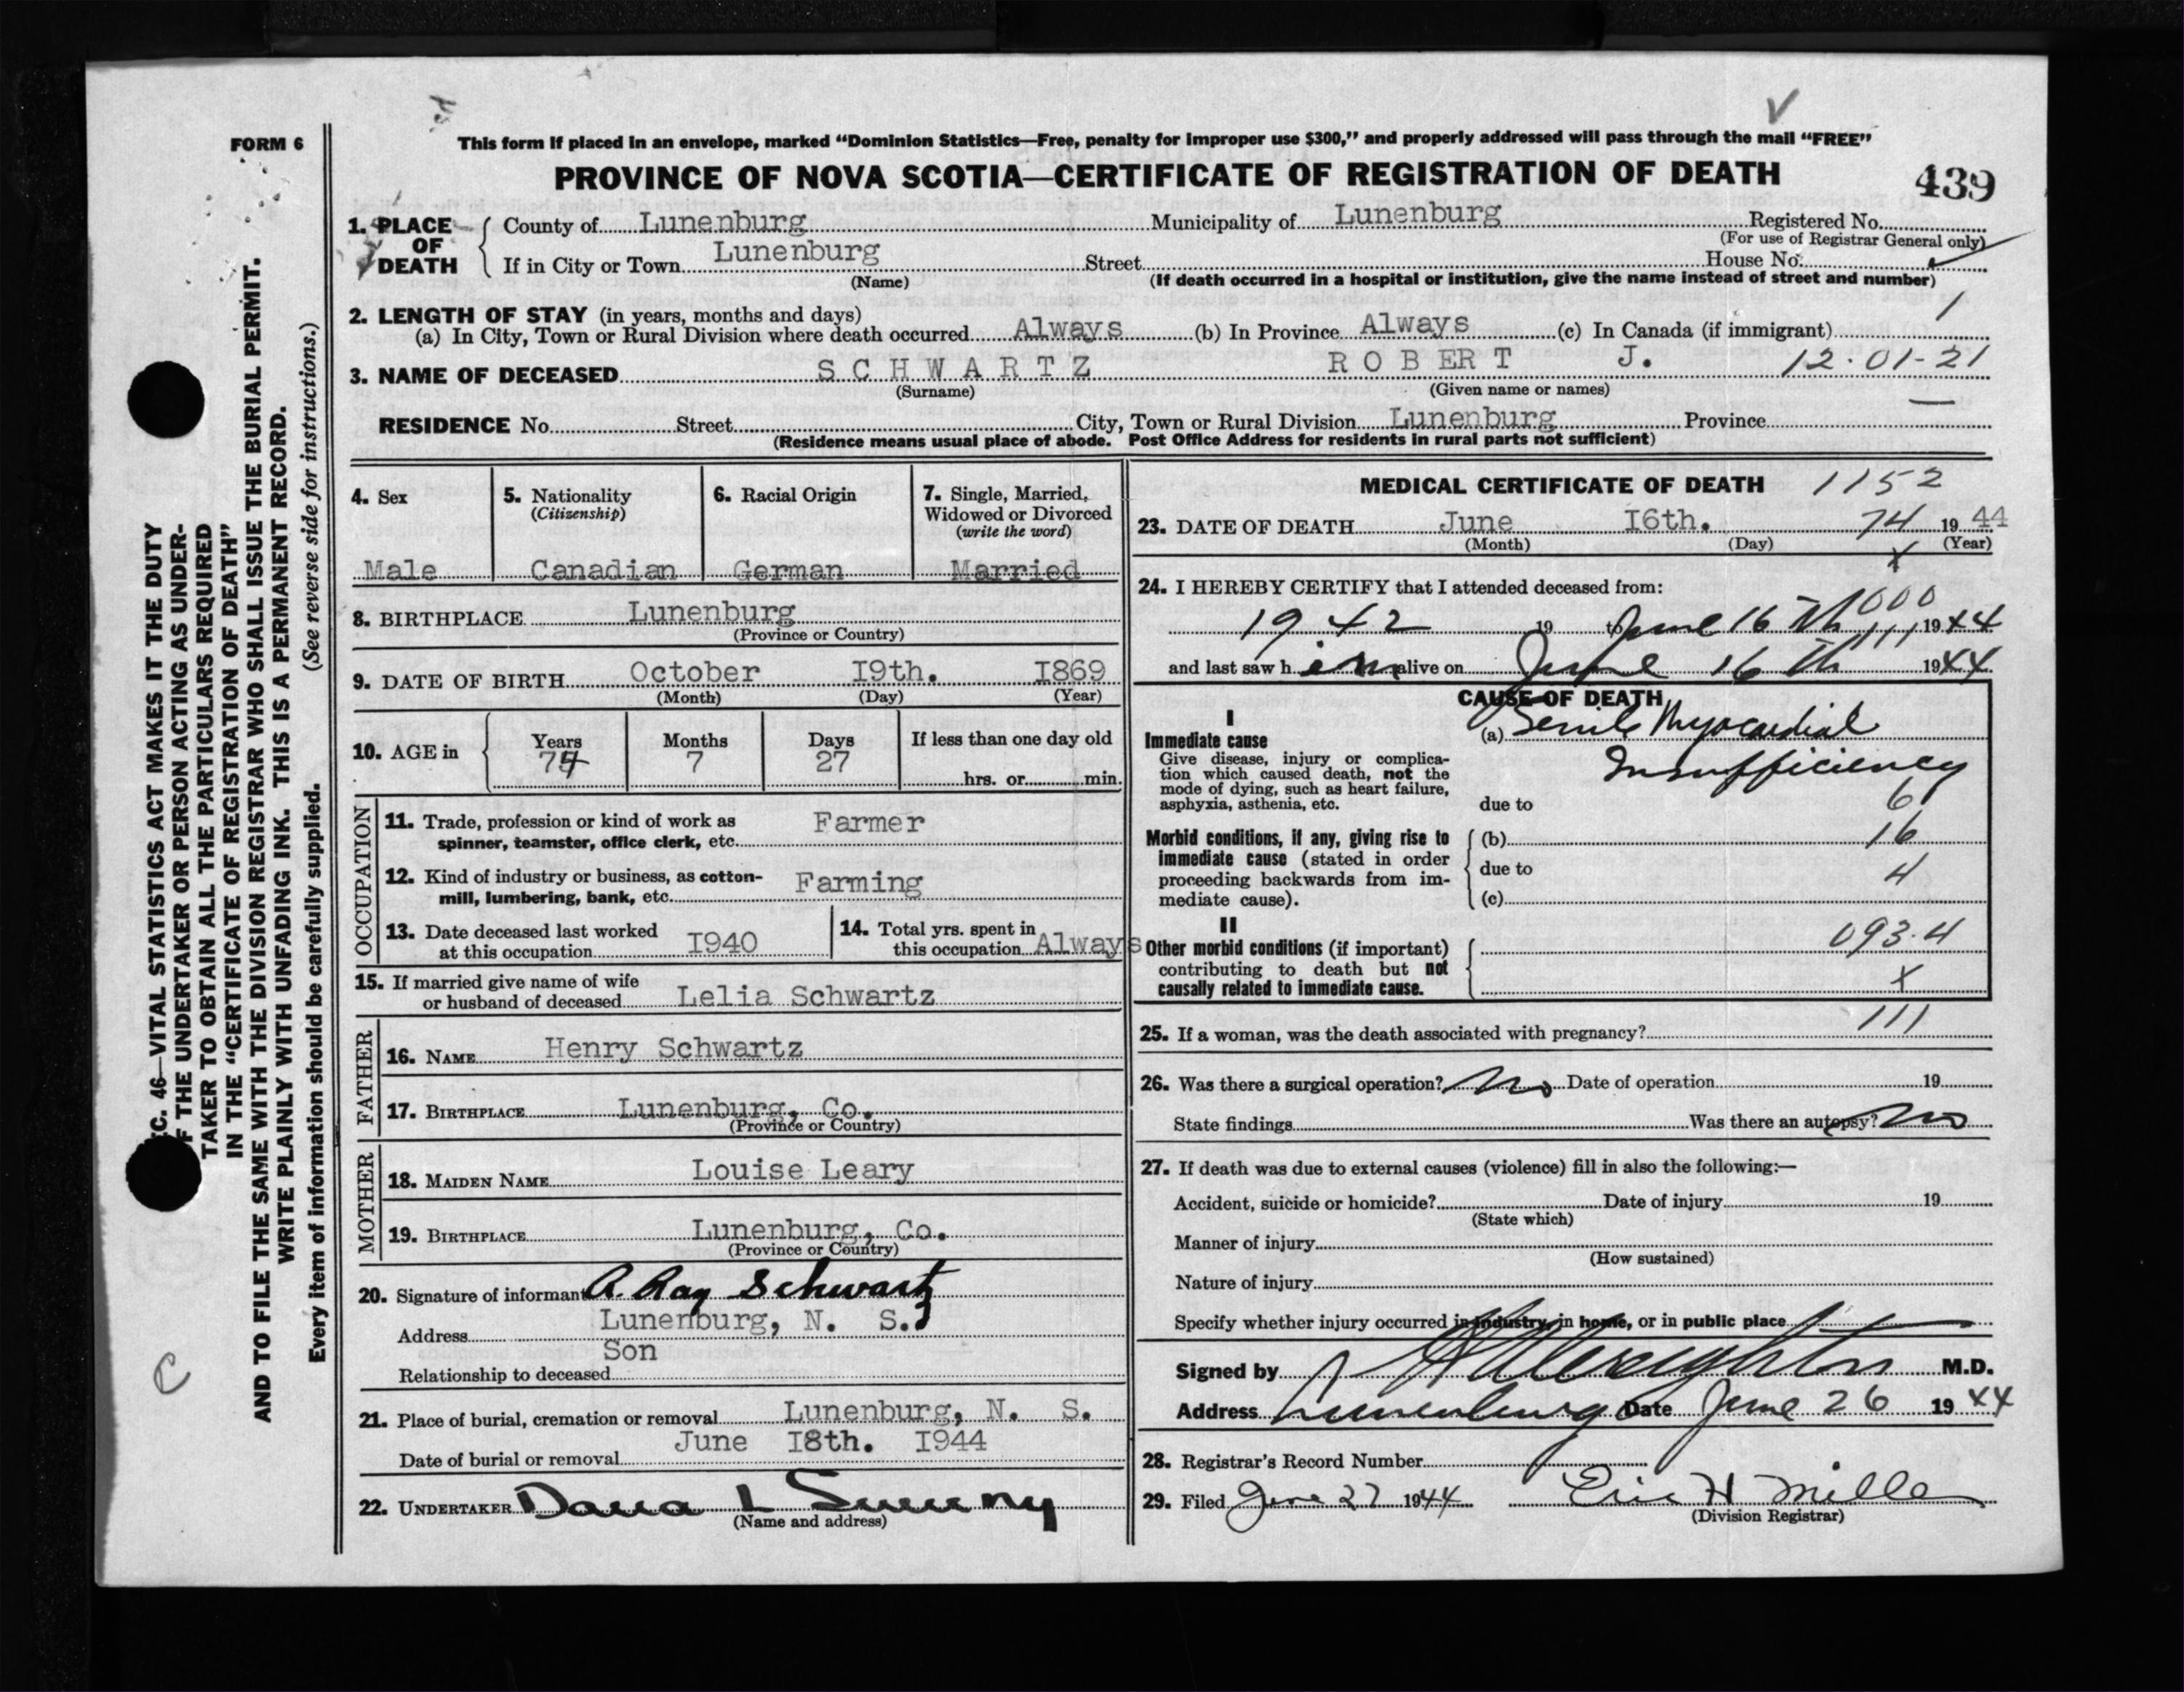 FORM 6
This form if placed in an envelope, marked “Dominion Statistics—Free, penalty for improper use $300,” and properly addressed will pass through the mail “FREE”
PROVINCE OF NOVA SCOTIA—CERTIFICATE OF REGISTRATION OF DEATH
439
1. PLACE OF DEATH
County of Lunenburg Municipality of Lunenburg Registered No.
(For use of Registrar General only)
If in City or Town Lunenburg Street House No.
(Name) (If death occurred in a hospital or institution, give the name instead of street and number)
2. LENGTH OF STAY (in years, months and days) 1
(a) In City, Town or Rural Division where death occurred Always (b) In Province Always (c) In Canada (if immigrant)
3. NAME OF DECEASED SCHWARTZ ROBERT J. 12.01-21
(Surname) (Given name or names)
RESIDENCE No. Street City, Town or Rural Division Lunenburg Province
(Residence means usual place of abode. Post Office Address for residents in rural parts not sufficient)
4. Sex
Male
5. Nationality
(Citizenship)
Canadian
6. Racial Origin
German
7. Single, Married,
Widowed or Divorced
(write the word)
Married
8. BIRTHPLACE Lunenburg
(Province or Country)
9. DATE OF BIRTH October I9th. I869
(Month) (Day) (Year)
10. AGE in
Years Months Days If less than one day old
74 7 27
hrs. or min.
OCCUPATION
11. Trade, profession or kind of work as
spinner, teamster, office clerk, etc. Farmer
12. Kind of industry or business, as cotton-
mill, lumbering, bank, etc. Farming
13. Date deceased last worked
at this occupation I940
14. Total yrs. spent in
this occupation Always
15. If married give name of wife
or husband of deceased Lelia Schwartz
FATHER
16. NAME Henry Schwartz
17. BIRTHPLACE Lunenburg, Co.
(Province or Country)
MOTHER
18. MAIDEN NAME Louise Leary
19. BIRTHPLACE Lunenburg, Co.
(Province or Country)
20. Signature of informant A. Ray Schwartz
Address Lunenburg, N. S.
Relationship to deceased Son
21. Place of burial, cremation or removal Lunenburg, N. S.
Date of burial or removal June I8th. I944
22. UNDERTAKER Dana L Sweeny
(Name and address)
MEDICAL CERTIFICATE OF DEATH 1152
23. DATE OF DEATH June I6th. 74 19 44
(Month) (Day) (Year)
X
24. I HEREBY CERTIFY that I attended deceased from:
000
1942 19 to June 16 Th 19 44
111
and last saw h im alive on June 16 Th 19 44
CAUSE OF DEATH
I
Immediate cause
Give disease, injury or complica-
tion which caused death, not the
mode of dying, such as heart failure,
asphyxia, asthenia, etc.
(a) Senile Myocardial
Insufficiency
due to 6
Morbid conditions, if any, giving rise to
immediate cause (stated in order
proceeding backwards from im-
mediate cause).
(b) 16
due to 4
(c)
II
Other morbid conditions (if important)
contributing to death but not
causally related to immediate cause.
093.4
X
25. If a woman, was the death associated with pregnancy? 111
26. Was there a surgical operation? No Date of operation 19
State findings Was there an autopsy? No
27. If death was due to external causes (violence) fill in also the following:—
Accident, suicide or homicide? Date of injury 19
(State which)
Manner of injury
(How sustained)
Nature of injury
Specify whether injury occurred in industry, in home, or in public place
Signed by M.D.
Address Lunenburg Date June 26 19 44
28. Registrar's Record Number
29. Filed June 27 1944 Eric H Miller
(Division Registrar)
SEC. 46—VITAL STATISTICS ACT MAKES IT THE DUTY
OF THE UNDERTAKER OR PERSON ACTING AS UNDER-
TAKER TO OBTAIN ALL THE PARTICULARS REQUIRED
IN THE “CERTIFICATE OF REGISTRATION OF DEATH”
AND TO FILE THE SAME WITH THE DIVISION REGISTRAR WHO SHALL ISSUE THE BURIAL PERMIT.
WRITE PLAINLY WITH UNFADING INK. THIS IS A PERMANENT RECORD.
Every item of information should be carefully supplied. (See reverse side for instructions.)
C